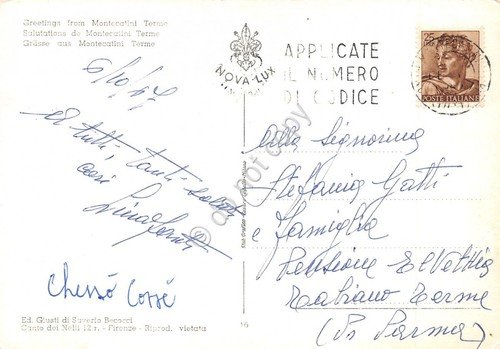 Greetings from Montecatini Terme
Salutations de Montecatini Terme
Grüsse aus Montecatini Terme
6/10/67
A tutti, tanti saluti
cari
NOVA-LUX
APPLICATE
IL NUMERO
DI CODICE
25
POSTE ITALIANE
Alla Signorina
Stefania Gatti
e famiglia
Pensione Elvettia
Tabiano Terme
(Pr Parma)
do not copy
Ed. Giusti di Saverio Becocci
Canto dei Nelli 12 r. - Firenze - Riprod. vietata
16